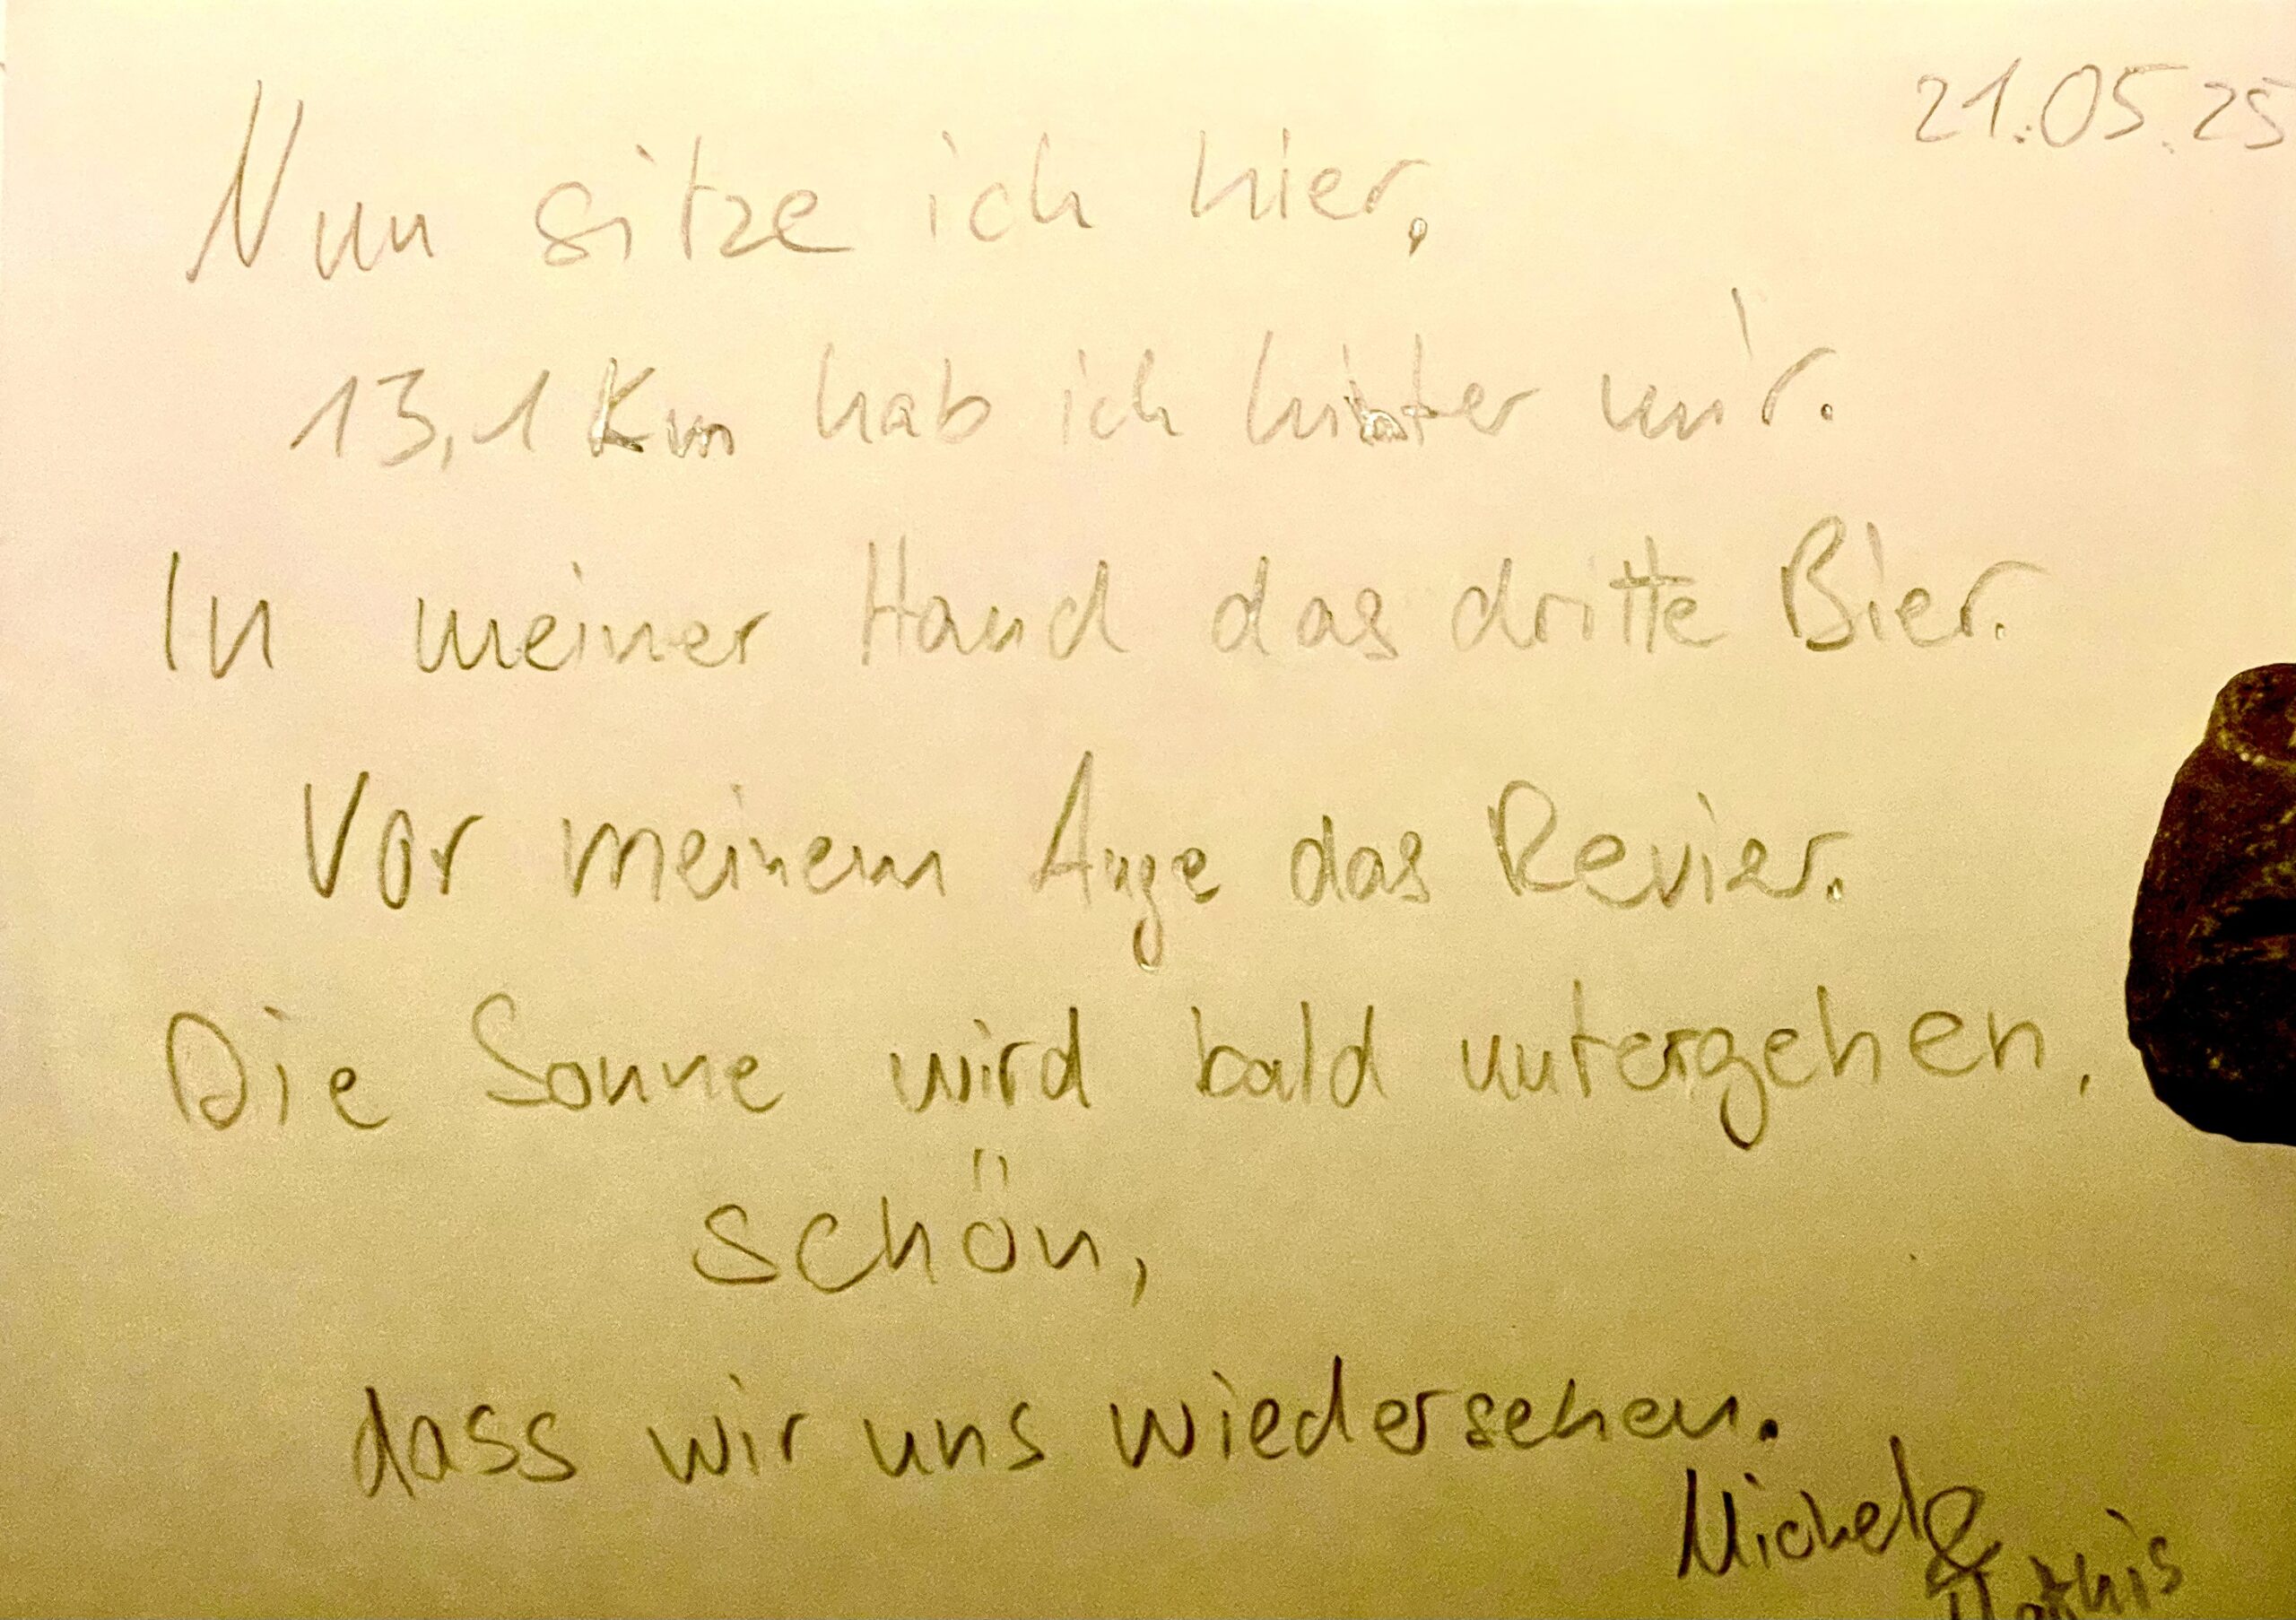 21.05.25
Nun sitze ich hier.
13,1 Km hab ich hinter mir.
In meiner Hand das dritte Bier.
Vor meinem Auge das Revier.
Die Sonne wird bald untergehen.
schön,
dass wir uns wiedersehen.
Michel &
Mathis